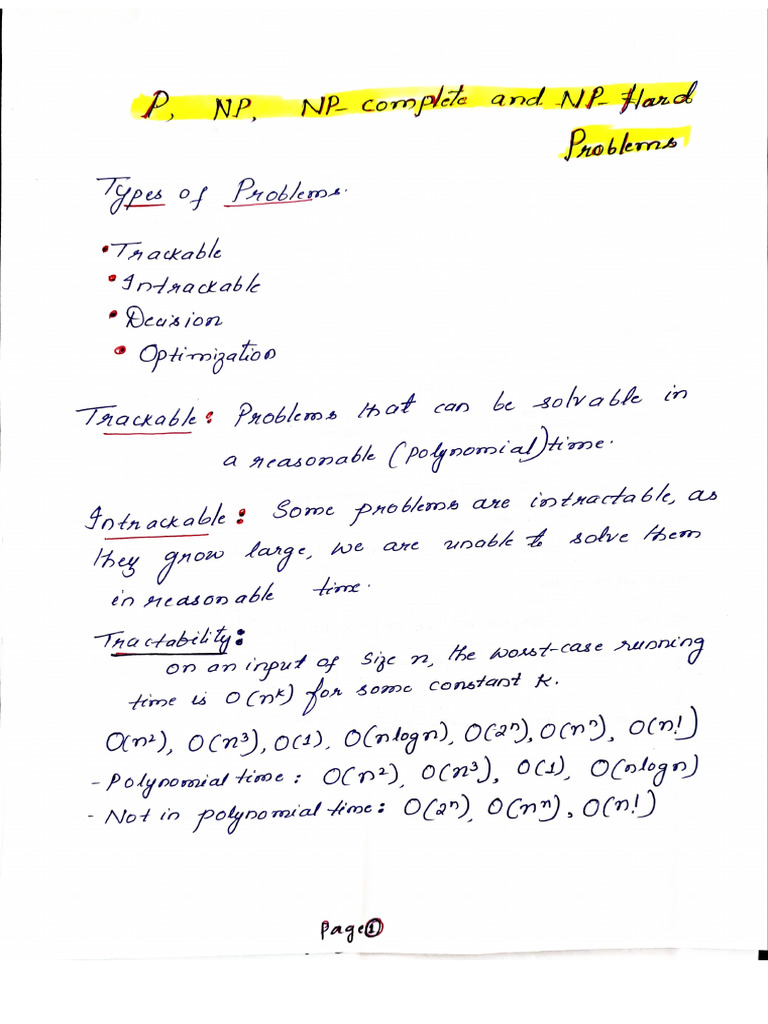 P, NP, NP-complete and NP-Hard
Problems
Types of Problems.
• Trackable
• Intrackable
• Decision
• Optimization
Trackable: Problems that can be solvable in
a reasonable (polynomial) time.
Intrackable: Some problems are intractable, as
they grow large, we are unable to solve them
in reasonable time.
Tractability:
on an input of size n, the worst-case running
time is O(n^k) for some constant K.
O(n²), O(n³), O(1), O(nlogn), O(2ⁿ), O(nⁿ), O(n!)
- Polynomial time: O(n²), O(n³), O(1), O(nlogn)
- Not in polynomial time: O(2ⁿ), O(nⁿ), O(n!)
Page 1